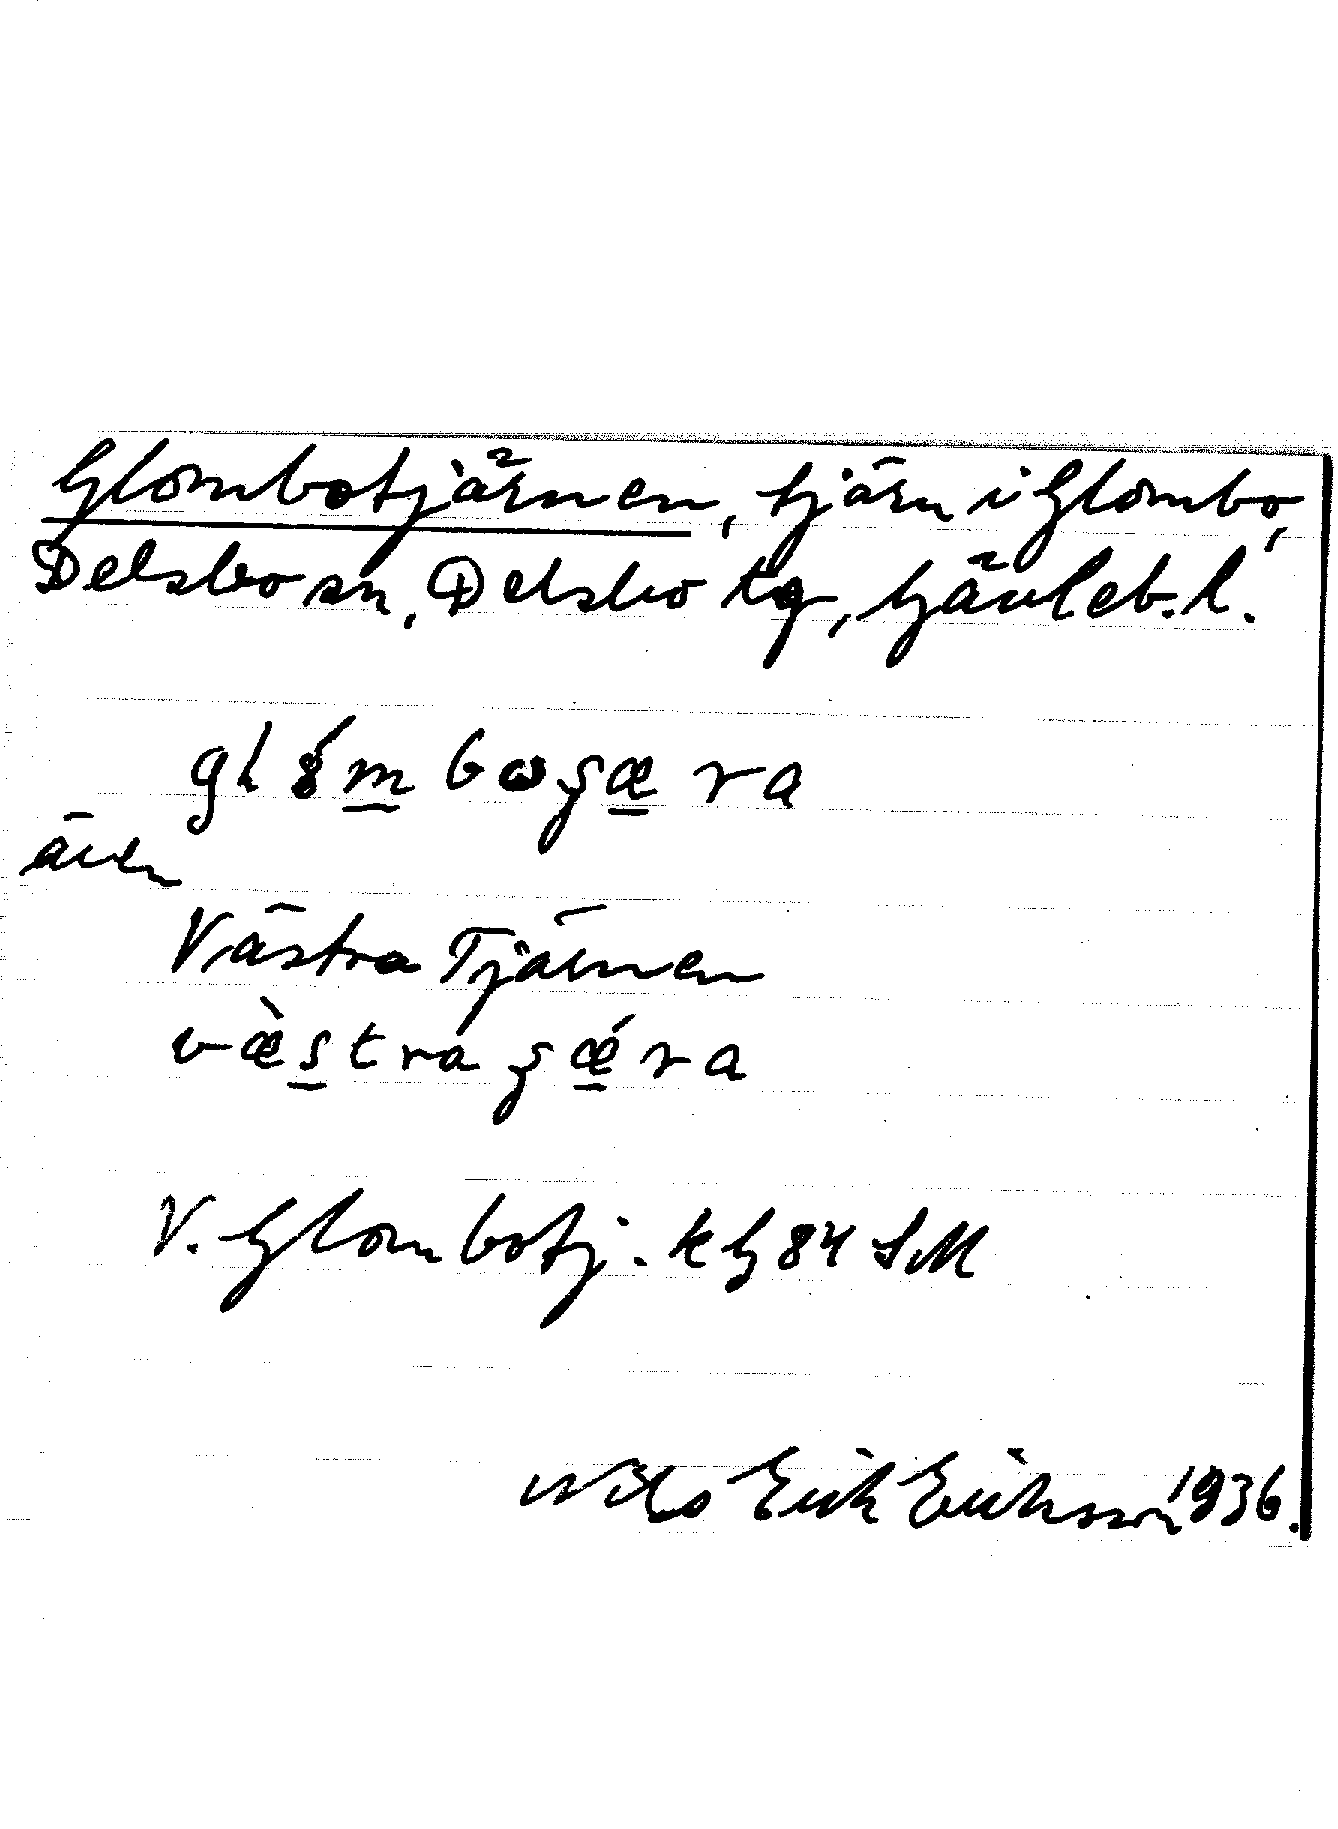 Glombotjärnen, tjärn i Glombo,
Delsbo sn, Delsbo tg, Gävleb. l.
även
Västra Tjärnen
västra
V. Glombotj. k G 84 SM
Nils Erik Eriksson 1936.